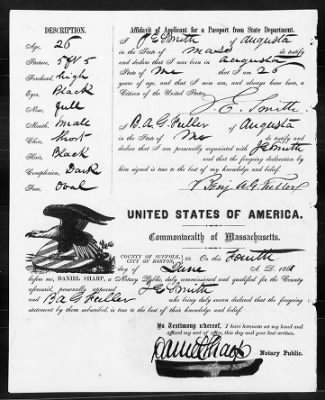 DESCRIPTION.
Age, 26
Stature, 5 ft 5
Forehead, high
Eyes, Black
Nose, full
Mouth, Male
Chin, Short
Hair, Black
Complexion, Dark
Face, Oval
Affidavit of Applicant for a Passport from State Department.
I J E Smith of Augusta
in the State of Mass do testify
and declare that I was born in Augusta
State of Me that I am 26
years of age, and that I am now, and always have been, a
Citizen of the United States.
J. E. Smith.
I B. A. G. Fuller of Augusta
in the State of Me do testify and
declare that I am personally acquainted with J E Smith
and that the foregoing declaration by
him signed is true to the best of my knowledge and belief.
Benj A. G. Fuller
UNITED STATES OF AMERICA.
Commonwealth of Massachusetts.
COUNTY OF SUFFOLK,
CITY OF BOSTON, } ss. On this Fourth
day of June A. D. 186
before me, DANIEL SHARP, a Notary Public, duly commissioned and qualified for the County
aforesaid, personally appeared J E Smith
and B. A. G. Fuller who being duly sworn declared that the foregoing
statement by them subscribed, is true to the best of their knowledge and belief.
In Testimony whereof, I have hereunto set my hand and
affixed my seal of office, this day and year last written.
Daniel Sharp
Notary Public.